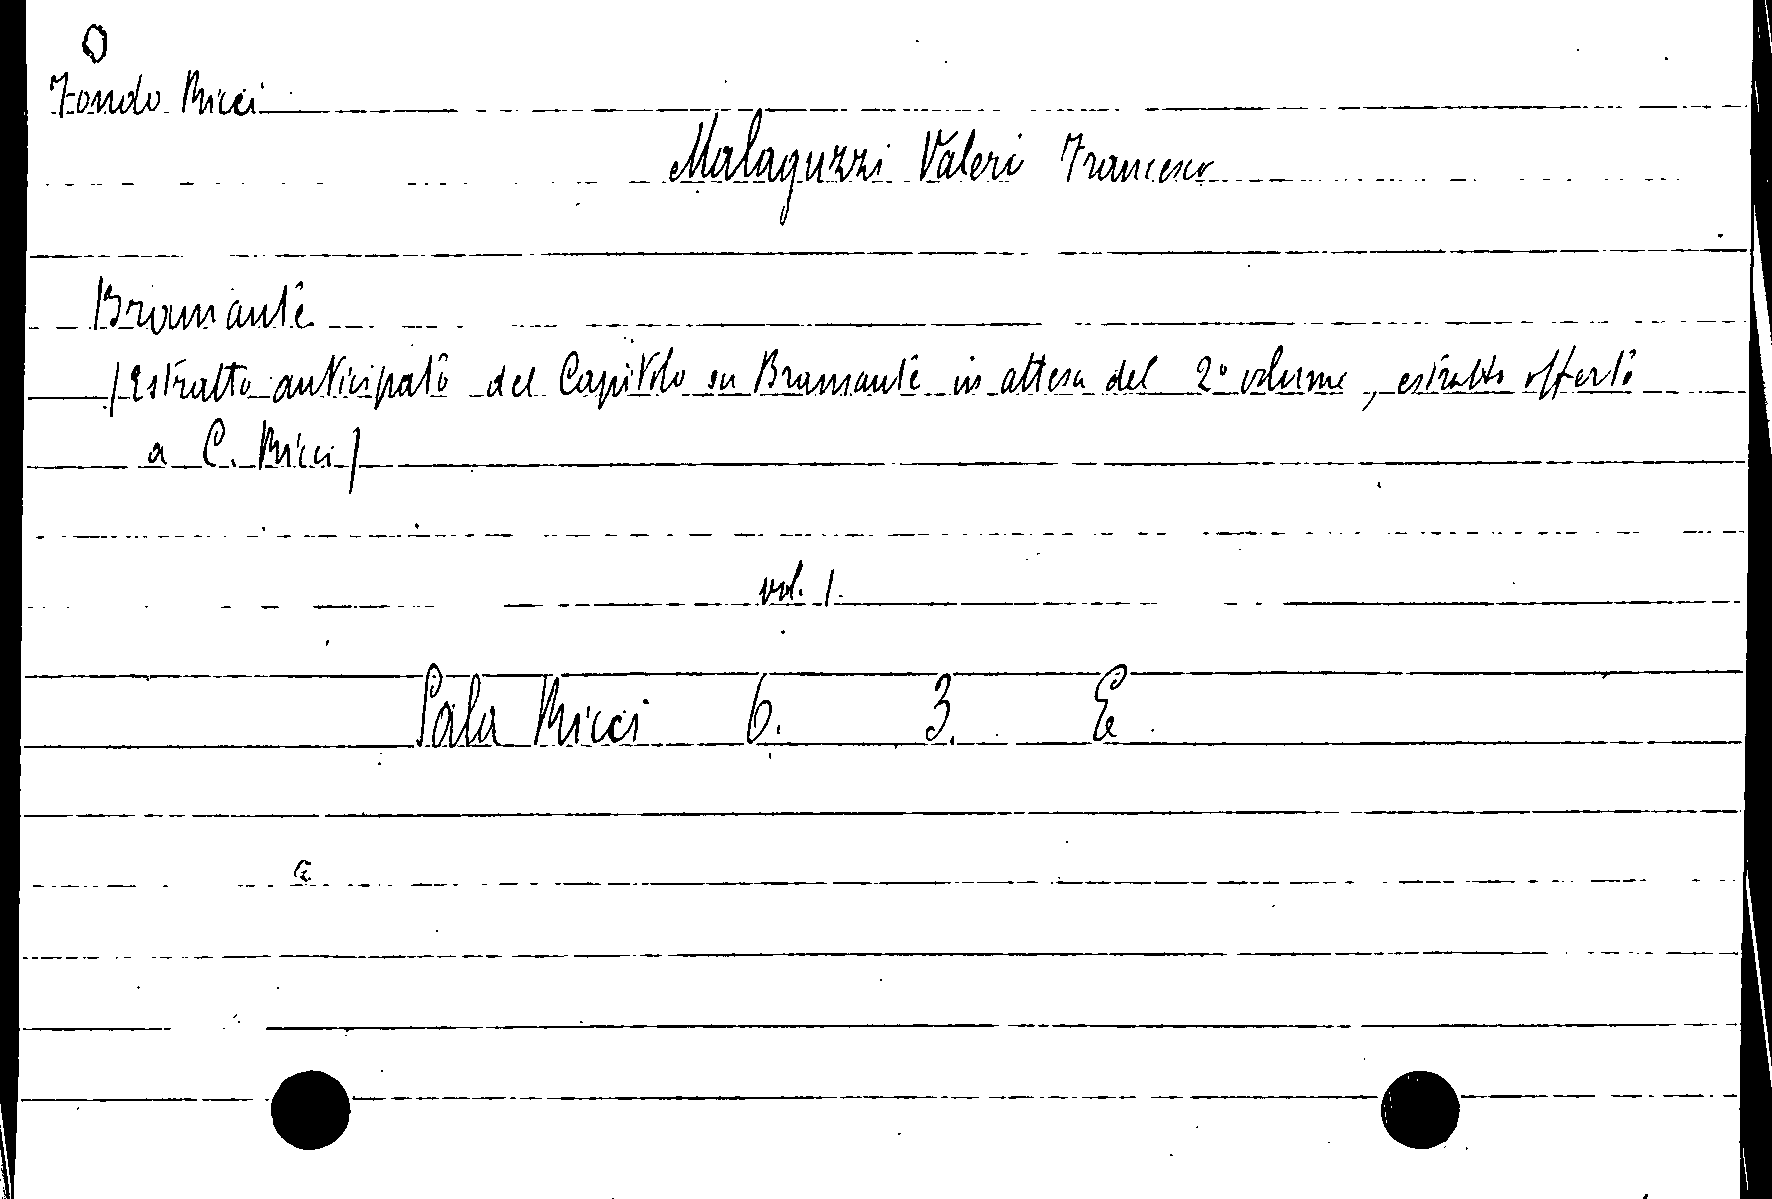 Fondo Ricci
Malaguzzi Valeri Francesco
Bramante
(Estratto anticipato del Capitolo su Bramante in attesa del 2° volume, estratto offerto
a C. Ricci)
vol. 1.
Sala Ricci 6. 3. E.